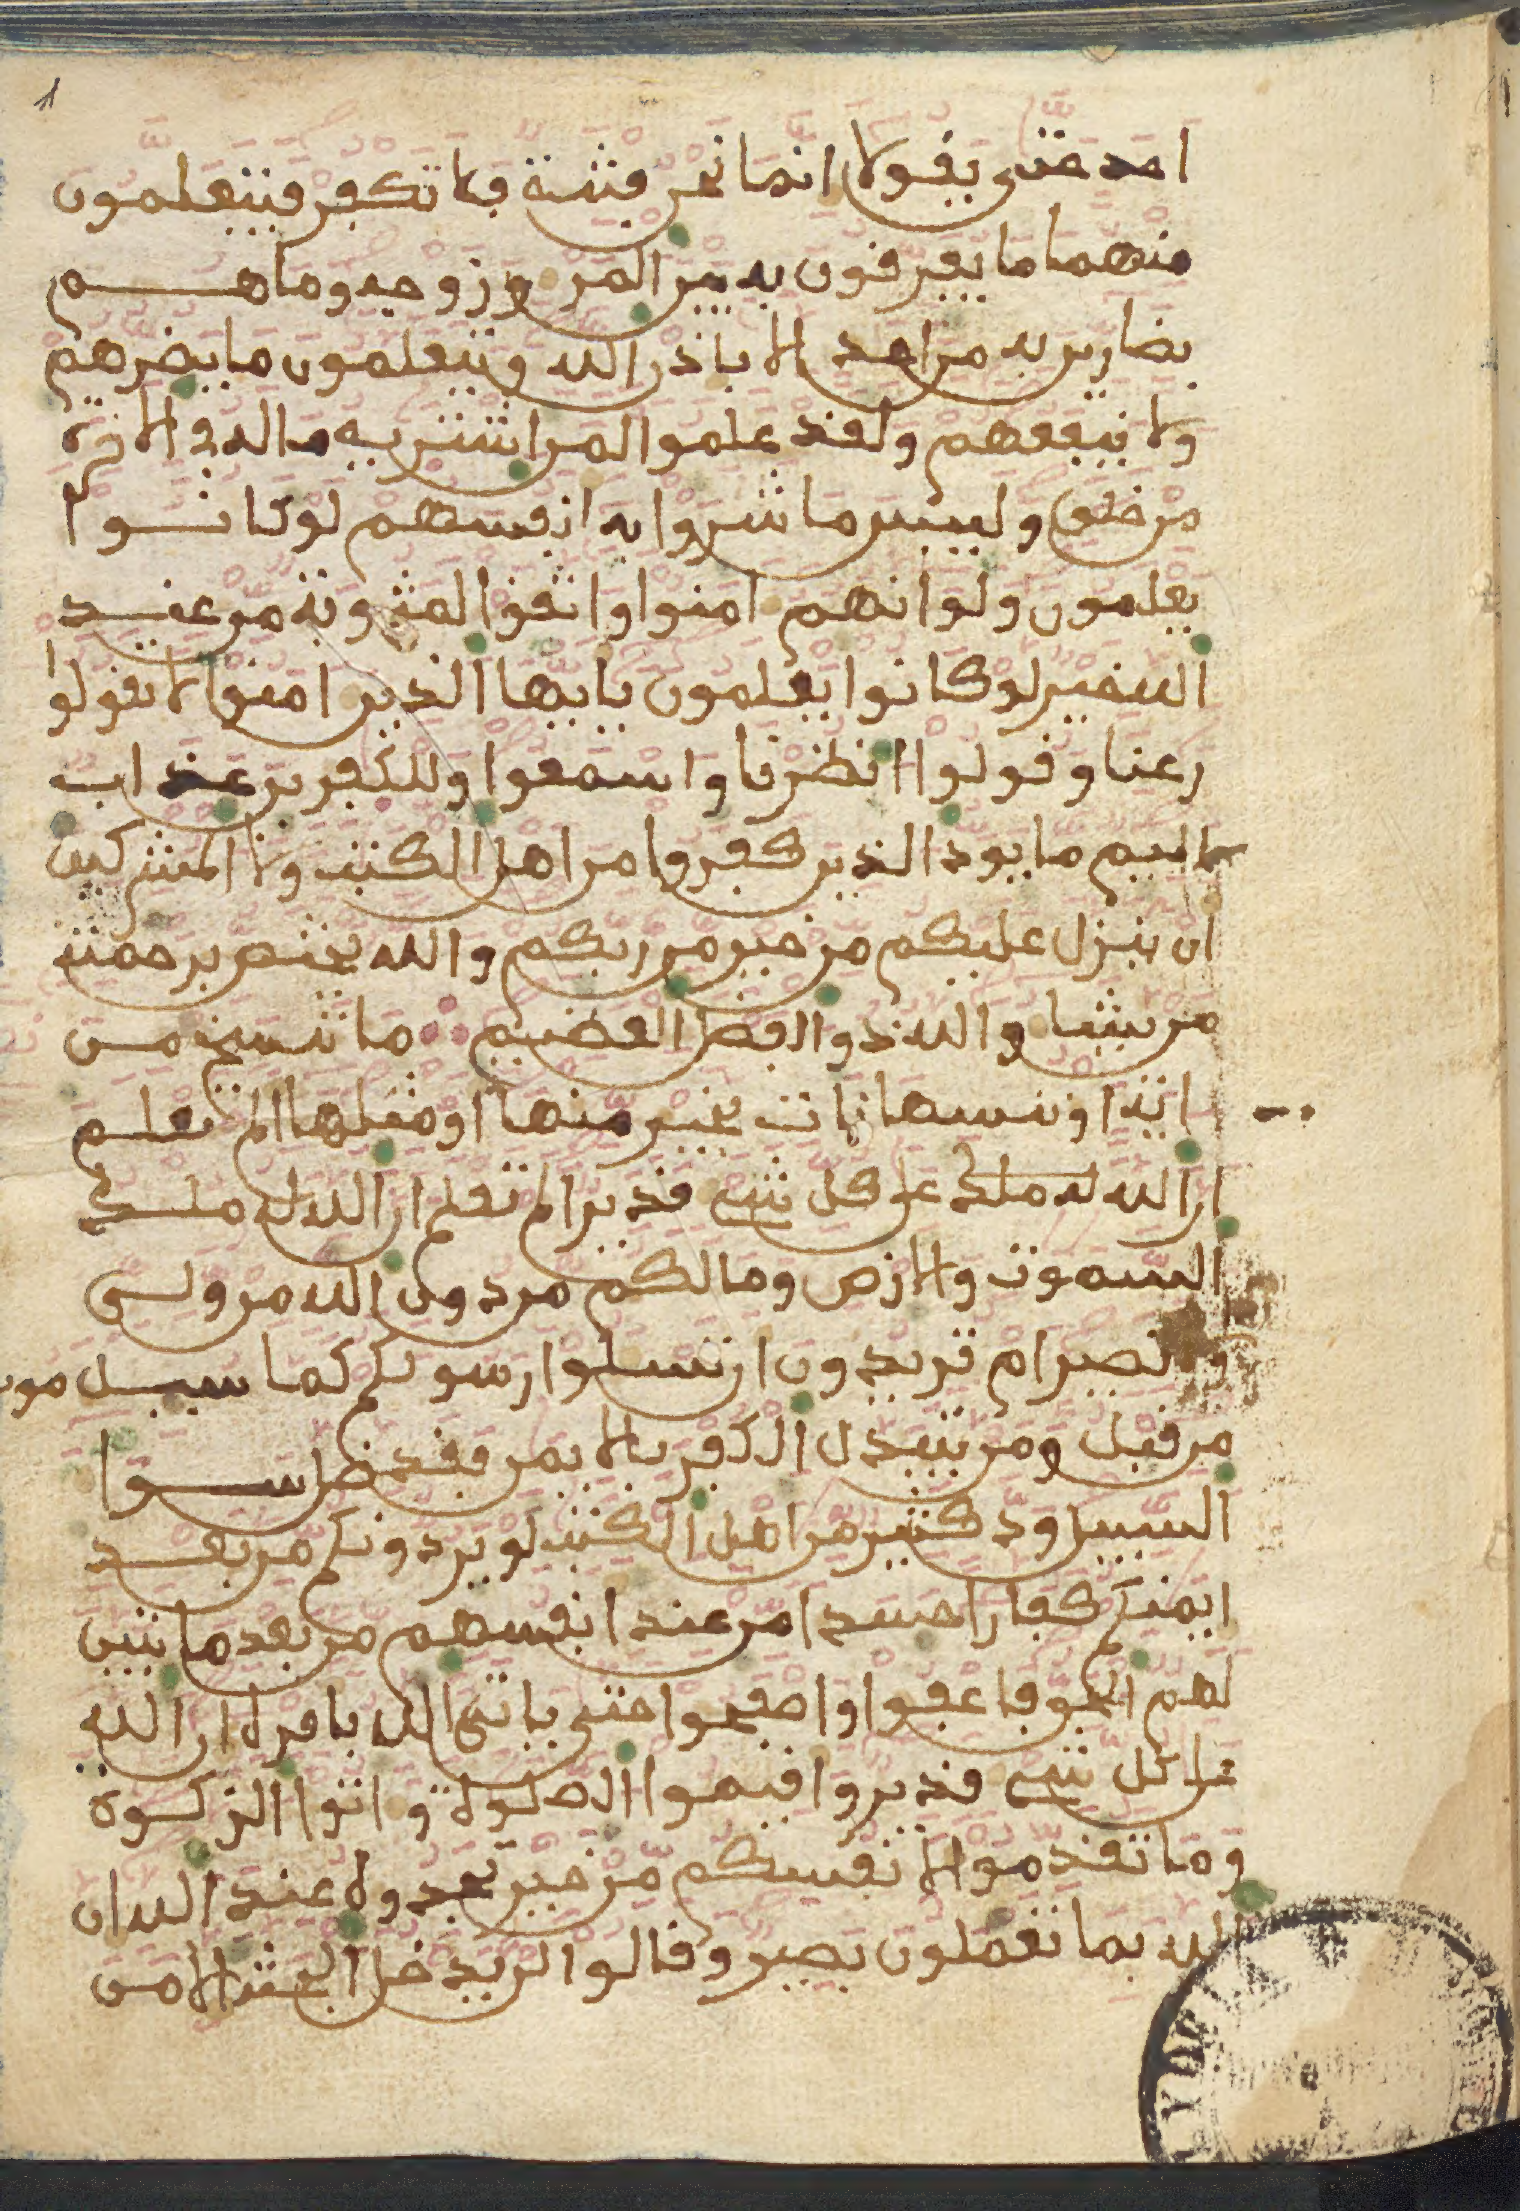 1
احد حتى يقولا انما نحن فتنة فلا تكفر فيتعلمون
منهما ما يفرقون به بين المر وزوجه وما هم
بضارين به من احد الا باذن الله ويتعلمون ما يضرهم
ولا ينفعهم ولقد علموا لمن اشتريه ما له في الاخرة
من خلق ولبيس ما شروا به انفسهم لو كانوا
يعلمون ولو انهم امنوا واتقوا لمثوبة من عند
الله خير لو كانوا يعلمون يايها الذين امنوا لا تقولوا
رعنا وقولوا انظرنا واسمعوا وللكفرين عذاب
اليم ما يود الذين كفروا من اهل الكتب ولا المشركين
ان ينزل عليكم من خير من ربكم والله يختص برحمته
من يشا والله ذو الفضل العضيم ما ننسخ من
اية او ننسها نات بخير منها او مثلها الم تعلم
ان الله له ملك على كل شي قدير الم تعلم ان الله له ملك
السموت والارض وما لكم من دون الله من ولي
ولا نصير ام تريدون ان تسلوا رسولكم كما سيل موسى
من قبل ومن يتبدل الكفر بالايمن فقد ضل سوا
السبيل ود كثير من اهل الكتب لو يردونكم من بعد
ايمنكم كفارا حسدا من عند انفسهم من بعد ما تبين
لهم الحق فاعفوا واصفحوا حتى ياتي الله بامره ان الله
على كل شي قدير واقيموا الصلوة واتوا الزكوة
وما تقدموا لانفسكم من خير تجدوه عند الله ان
الله بما تعملون بصير وقالوا لن يدخل الجنة الا من